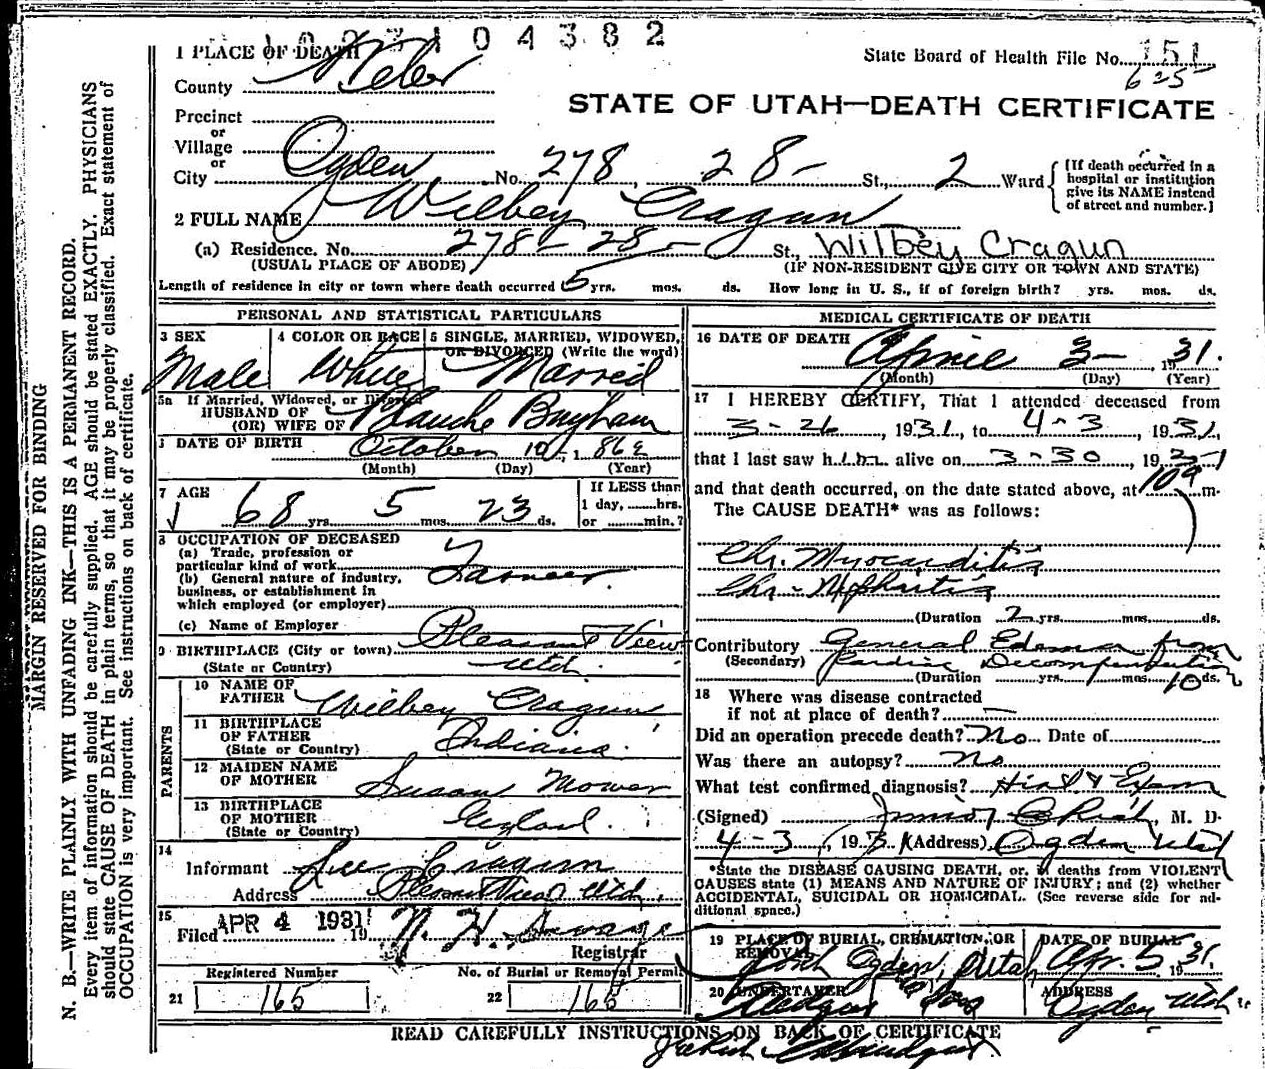 104382
1 PLACE OF DEATH
State Board of Health File No. 151
625
County Weber
STATE OF UTAH—DEATH CERTIFICATE
Precinct
or
Village
or
City Ogden No. 278 28- St., 2 Ward
[If death occurred in a
hospital or institution
give its NAME instead
of street and number.]
2 FULL NAME Wilbey Cragun
(a) Residence. No. 278-28- St., Wilbey Cragun
(USUAL PLACE OF ABODE) (IF NON-RESIDENT GIVE CITY OR TOWN AND STATE)
Length of residence in city or town where death occurred 5 yrs. mos. ds. How long in U. S., if of foreign birth? yrs. mos. ds.
PERSONAL AND STATISTICAL PARTICULARS
3 SEX 4 COLOR OR RACE 5 SINGLE, MARRIED, WIDOWED,
OR DIVORCED (Write the word)
Male White Married
5a If Married, Widowed, or Divorced
HUSBAND OF
(OR) WIFE OF Blanche
DATE OF BIRTH October 10, 1862
(Month) (Day) (Year)
7 AGE If LESS than
1 day, hrs.
68 yrs. 5 mos. 23 ds. or min.?
8 OCCUPATION OF DECEASED
(a) Trade, profession or
particular kind of work Farmer
(b) General nature of industry,
business, or establishment in
which employed (or employer)
(c) Name of Employer
9 BIRTHPLACE (City or town) Pleasant View
(State or Country) Utah.
PARENTS
10 NAME OF
FATHER Wilbey Cragun
11 BIRTHPLACE
OF FATHER
(State or Country) Indiana.
12 MAIDEN NAME
OF MOTHER Susan Mower
13 BIRTHPLACE
OF MOTHER
(State or Country)
14
Informant Cragun
Address Pleasant View Utah.
15
Filed APR 4 1931 19
Registrar
Registered Number No. of Burial or Removal Permit
21 165 22 165
MEDICAL CERTIFICATE OF DEATH
16 DATE OF DEATH April 3- 1931.
(Month) (Day) (Year)
17 I HEREBY CERTIFY, That I attended deceased from
3-26, 1931, to 4-3, 1931,
that I last saw him alive on 3-30, 1931
and that death occurred, on the date stated above, at m.
The CAUSE DEATH* was as follows:
Chr. Myocarditis
Chr - Nephritis
(Duration 2 yrs. mos. ds.
Contributory General Edema from
(Secondary) Cardiac Decompensation
(Duration yrs. mos. 10 ds.
18 Where was disease contracted
if not at place of death?
Did an operation precede death? No Date of
Was there an autopsy? No
What test confirmed diagnosis? Hist & Exam
(Signed) Junior E Rich, M. D.
4-3, 1931 (Address) Ogden Utah
*State the DISEASE CAUSING DEATH, or, if deaths from VIOLENT
CAUSES state (1) MEANS AND NATURE OF INJURY; and (2) whether
ACCIDENTAL, SUICIDAL OR HOMICIDAL. (See reverse side for ad-
ditional space.)
19 PLACE OF BURIAL, CREMATION, OR
REMOVAL DATE OF BURIAL
North Ogden, Utah Apr. 5 1931.
20 UNDERTAKER ADDRESS
& Sons Ogden Utah
READ CAREFULLY INSTRUCTIONS ON BACK OF CERTIFICATE
MARGIN RESERVED FOR BINDING
N. B.—WRITE PLAINLY WITH UNFADING INK—THIS IS A PERMANENT RECORD.
Every item of information should be carefully supplied. AGE should be stated EXACTLY. PHYSICIANS
should state CAUSE OF DEATH in plain terms, so that it may be properly classified. Exact statement of
OCCUPATION is very important. See instructions on back of certificate.